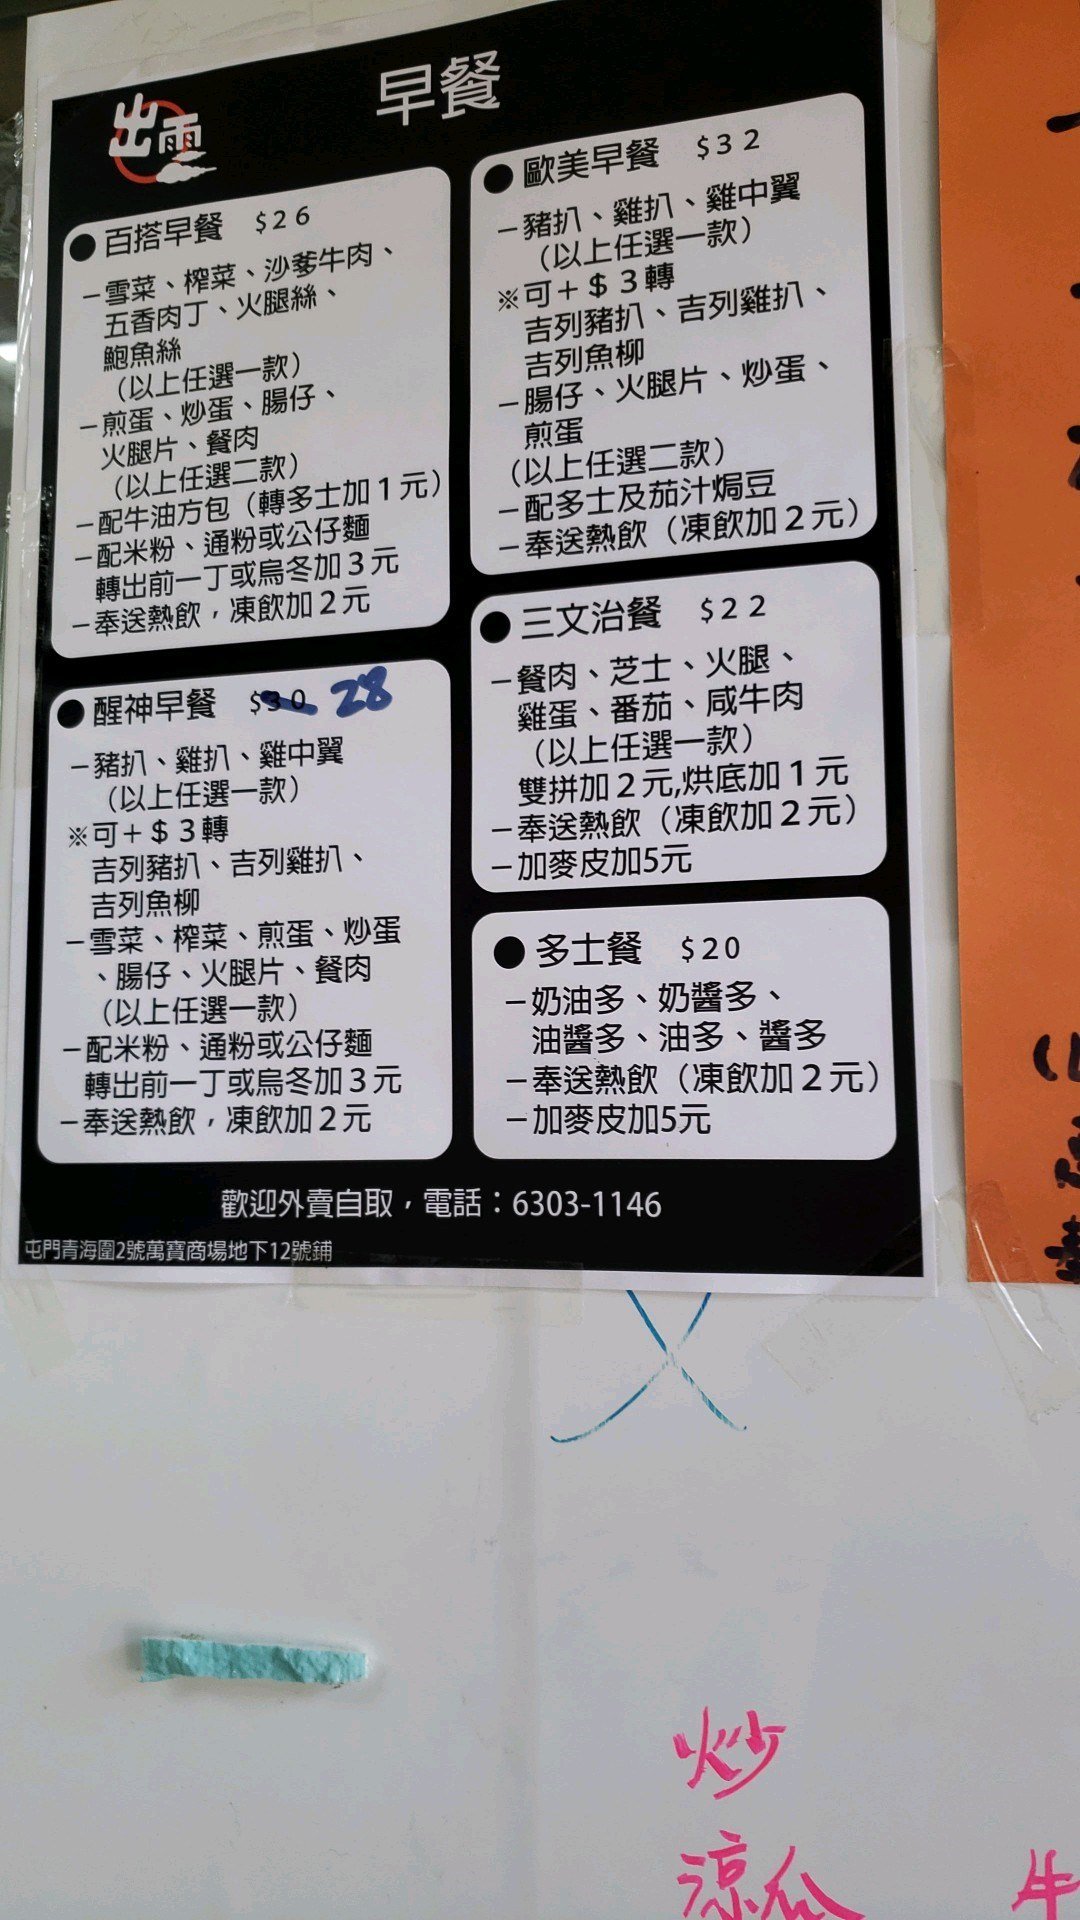 出雲
早餐
●百搭早餐 $26
－雪菜、榨菜、沙爹牛肉、
五香肉丁、火腿絲、
鮑魚絲
（以上任選一款）
－煎蛋、炒蛋、腸仔、
火腿片、餐肉
（以上任選二款）
－配牛油方包（轉多士加1元）
－配米粉、通粉或公仔麵
轉出前一丁或烏冬加3元
－奉送熱飲，凍飲加2元
●醒神早餐 $30 28
－豬扒、雞扒、雞中翼
（以上任選一款）
※可＋$3轉
吉列豬扒、吉列雞扒、
吉列魚柳
－雪菜、榨菜、煎蛋、炒蛋
、腸仔、火腿片、餐肉
（以上任選一款）
－配米粉、通粉或公仔麵
轉出前一丁或烏冬加3元
－奉送熱飲，凍飲加2元
●歐美早餐 $32
－豬扒、雞扒、雞中翼
（以上任選一款）
※可＋$3轉
吉列豬扒、吉列雞扒、
吉列魚柳
－腸仔、火腿片、炒蛋、
煎蛋
（以上任選二款）
－配多士及茄汁焗豆
－奉送熱飲（凍飲加2元）
●三文治餐 $22
－餐肉、芝士、火腿、
雞蛋、番茄、咸牛肉
（以上任選一款）
雙拼加2元,烘底加1元
－奉送熱飲（凍飲加2元）
－加麥皮加5元
●多士餐 $20
－奶油多、奶醬多、
油醬多、油多、醬多
－奉送熱飲（凍飲加2元）
－加麥皮加5元
歡迎外賣自取，電話：6303-1146
屯門青海圍2號萬寶商場地下12號鋪
炒
涼瓜
牛